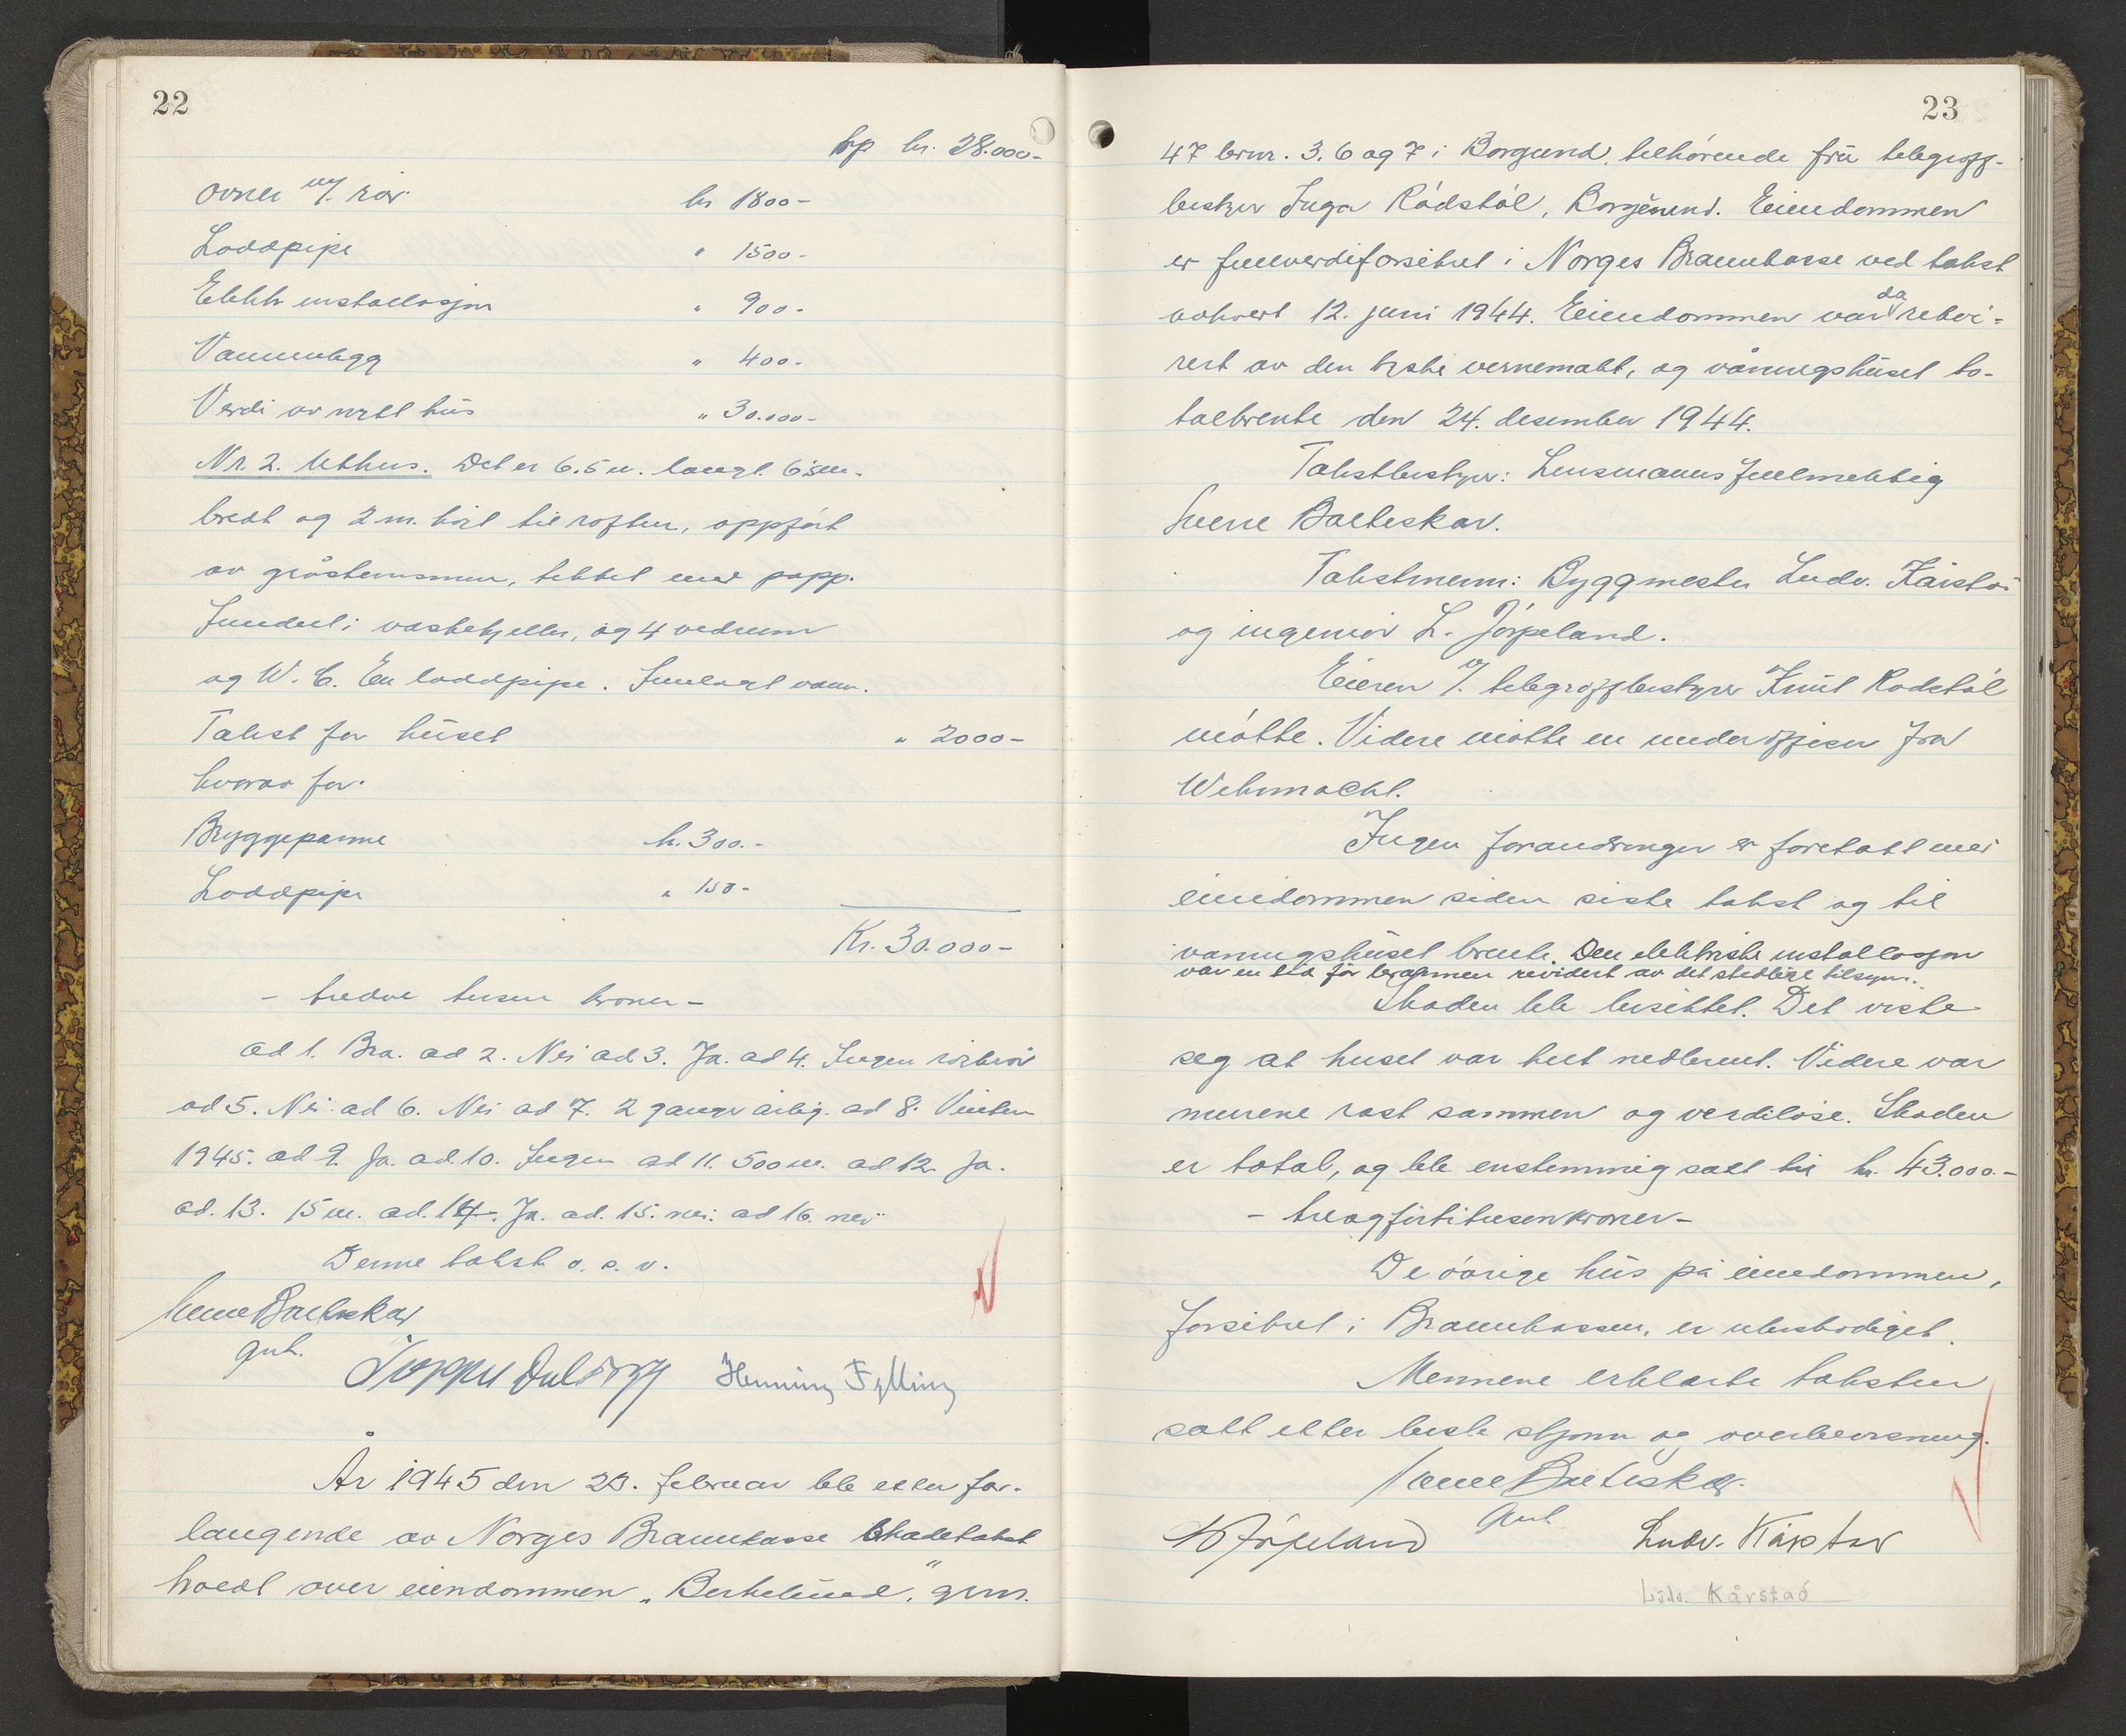 22
kr. 28.000-
Ovner m/. rør kr 1800-
Loddpipe " 1500-
Elektr installasjon " 900-
Vanninnlegg " 400-
Verdi av nytt hus " 30.000-
Nr. 2. Uthus. Det er 6.5 m. langt. 6.5 m.
bredt og 2 m. høit til raften, oppført
av gråstensmur, tekket med papp.
Innhold: vaskekjeller, og 4 vedrum
og W. C. En loddpipe. Innlagt vann.
Takst for huset " 2000-
hvorav for:
Bryggepanne kr. 300.-
Loddpipe " 150-
Kr. 30.000-
- tredve tusen kroner -
ad 1. Bra. ad 2. Nei ad 3. Ja. ad 4. Ingen
ad 5. Nei ad 6. Nei ad 7. 2 ganger årlig. ad 8. Vinteren
1945. ad 9. Ja. ad. 10. Ingen ad 11. 500 m. ad 12. Ja.
ad. 13. 15 m. ad. 14. Ja. ad. 15. nei. ad 16. nei
Denne takst o. s. v.
Sverre Balteskar
Henning Fylling
År 1945 den 23. februar ble etter for-
langende av Norges Brannkasse skadetakst
holdt over eiendommen "Berkelund", gnr.
23
47 brnr. 3. 6 og 7 i Borgund, tilhørende fru telegraf-
bestyrer Inga Rødstøl, Borgund. Eiendommen
er fullverdiforsikret i Norges Brannkasse ved takst
avholdt 12. juni 1944. Eiendommen var da rekvi-
rert av den tyske vernemakt, og våningshuset to-
talbrente den 24. desember 1944.
Takstbestyrer: Lensmannsfullmektig
Sverre Balteskar.
Takstmenn: Byggmester Ludv. Kårstad
og ingeniør L. Jørpeland.
Eieren v/. telegrafbestyrer Knut Rødstøl
møtte. Videre møtte en underoffiser fra
Wehrmacht.
Ingen forandringer er foretatt med
eiendommen siden siste takst og til
våningshuset brente. Den elektriske installasjon
var en tid før brannen revidert av det stedlige tilsyn.
Skaden ble besiktet. Det viste
seg at huset var helt nedbrent. Videre var
murene rast sammen og verdiløse. Skaden
er total, og ble enstemmig satt til kr. 43.000.-
- treogførtitusenkroner -
De øvrige hus på eiendommen,
forsikret i Brannkassen, er ubeskadiget.
Mennene erklærte taksten
satt etter beste skjønn og overbevisning.
Sverre Balteskar.
L Jørpeland Ludv. Kårstad
Ludv. Kårstad